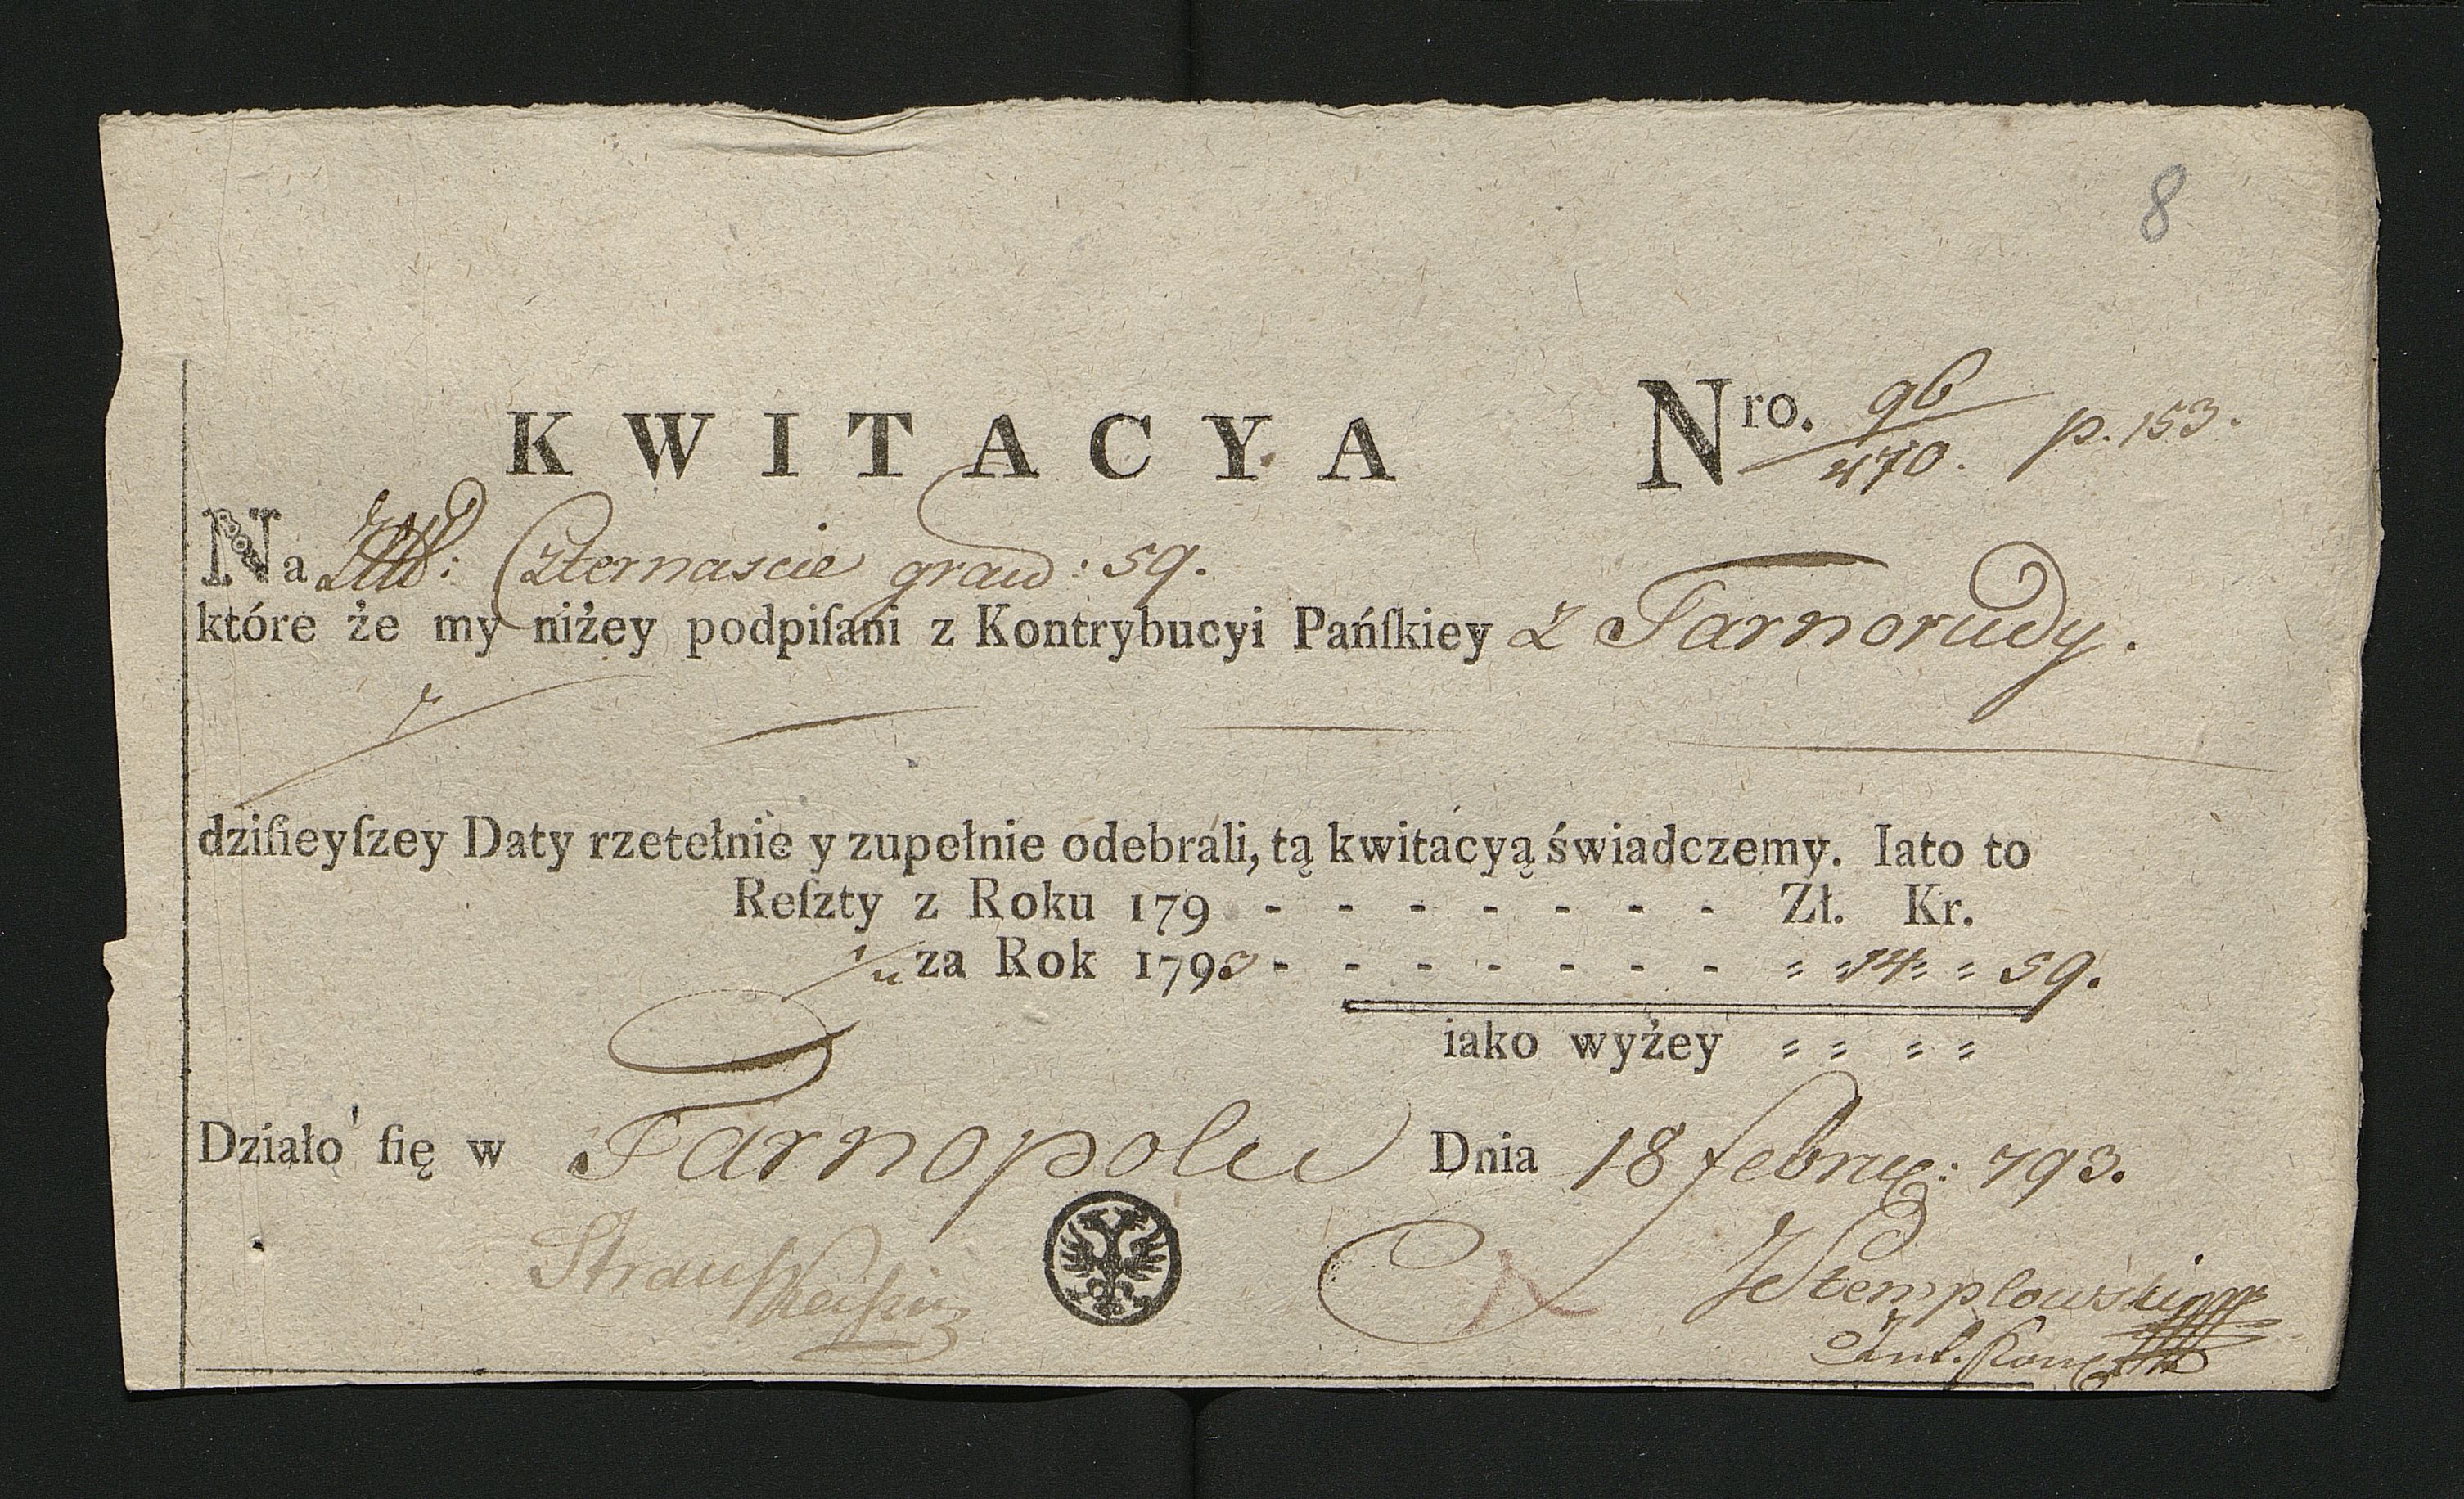 8
KWITACYA Nro. 96/470. p. 153.
Na Czternascie graw: 59.
które że my niżey podpiſani z Kontrybucyi Pańſkiey z Tarnorudy.
dziſieyſzey Daty rzetełnie y zupełnie odebrali, tą kwitacyą świadczemy. Iato to
Reſzty z Roku 179 - - - - - - - Zł. Kr.
za Rok 1793 - - - - - - - 14 59.
iako wyżey
Działo ſię w Tarnopolu Dnia 18 februa: 793.
Strauſ
Stemplowski